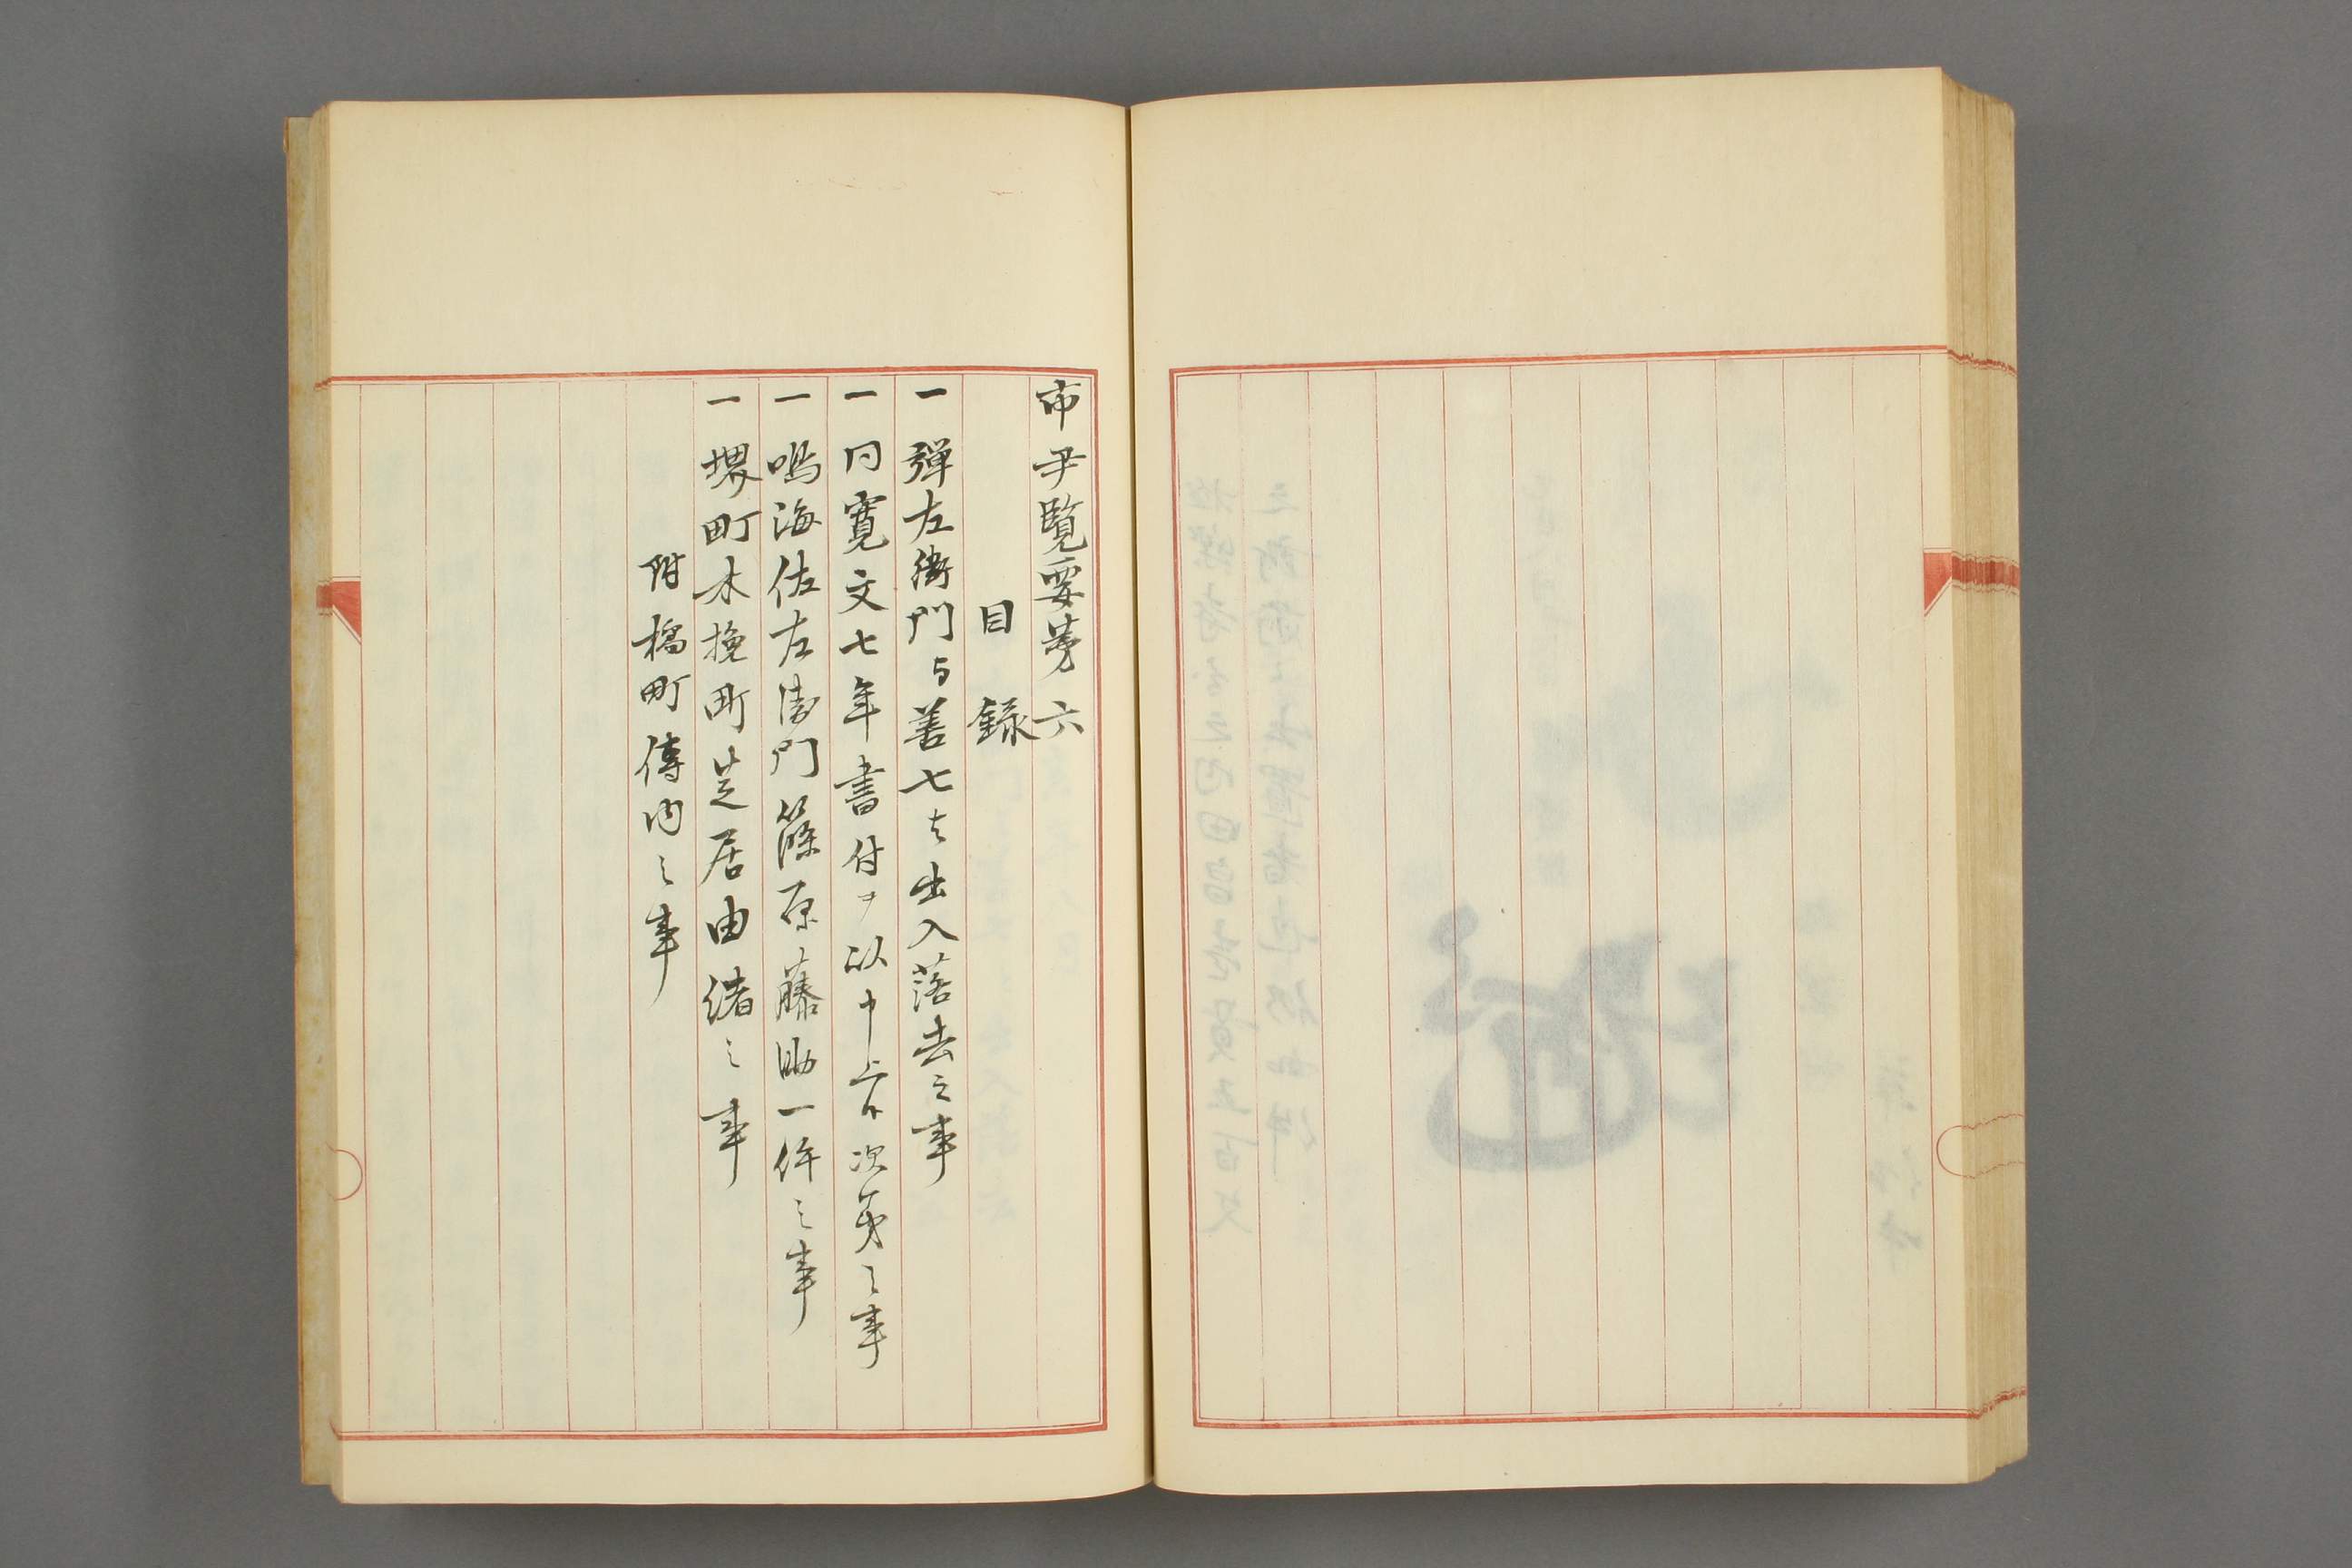 市尹覧要巻六
目録
一弾左衛門与善七と出入落去之事
一同寛文七年書付ヲ以申上ル次第之事
一鳴海佐左衛門篠原藤助一件之事
一堺町木挽町芝居由緒之事
附橘町傳内之事